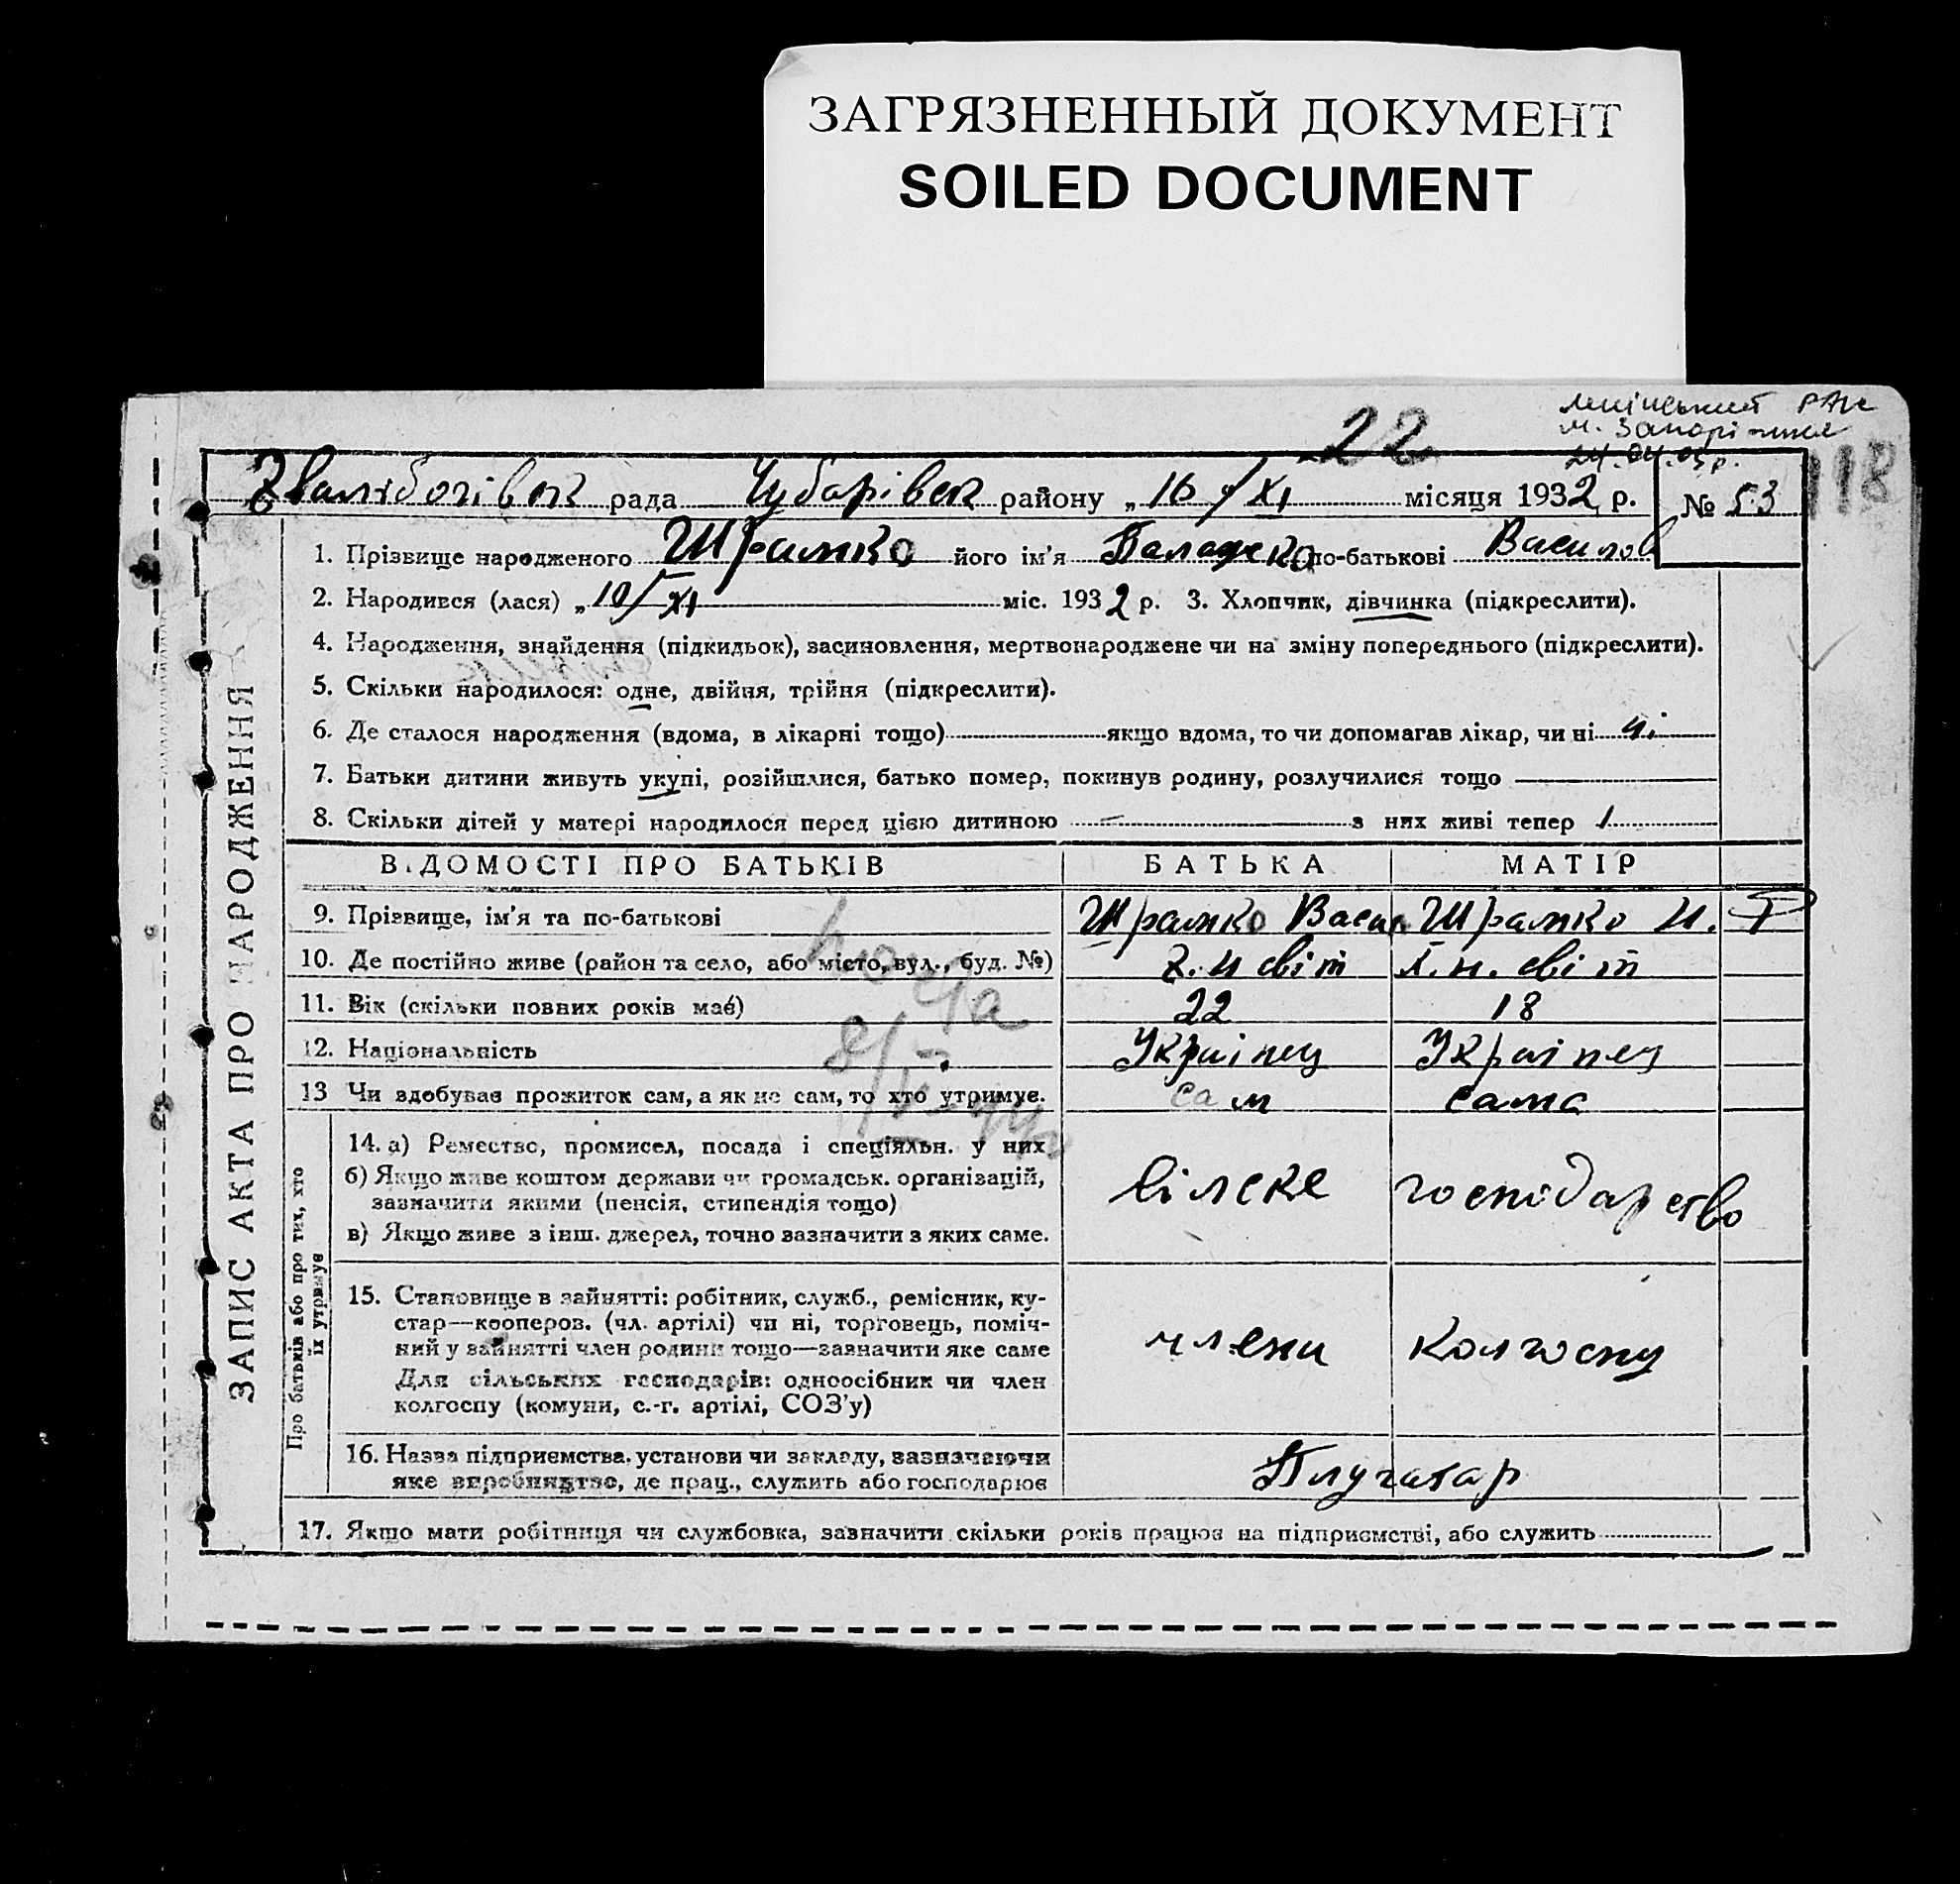 ЗАГРЯЗНЕННЫЙ ДОКУМЕНТ
SOILED DOCUMENT
22
м. Запоріжжя
24.04.03р.
118
рада Чубарівск району „16/XI місяця 1932 р. № 53
1. Прізвище народженого Шрамко його ім'я по-батькові Василов
2. Народився (лася) „10/XI міс. 1932 р. 3. Хлопчик, дівчинка (підкреслити).
4. Народження, знайдення (підкидьок), засиновлення, мертвонароджене чи на зміну попереднього (підкреслити).
5. Скільки народилося: одне, двійня, трійня (підкреслити).
6. Де сталося народження (вдома, в лікарні тощо) якщо вдома, то чи допомагав лікар, чи ні ні
7. Батьки дитини живуть укупі, розійшлися, батько помер, покинув родину, розлучилися тощо
8. Скільки дітей у матері народилося перед цією дитиною — з них живі тепер 1
ЗАПИС АКТА ПРО НАРОДЖЕННЯ
ВІДОМОСТІ ПРО БАТЬКІВ БАТЬКА МАТІР
9. Прізвище, ім'я та по-батькові Шрамко Васил Шрамко И.
10. Де постійно живе (район та село, або місто, вул., буд. №) Х. н світ Х. н. світ
11. Вік (скільки повних років має) 22 18
12. Національність Українец Українец
13 Чи здобуває прожиток сам, а як не сам, то хто утримує. сам сама
Про батьків або про тих, хто їх утримує
14. а) Ремество, промисел, посада і спеціяльн. у них
б) Якщо живе коштом держави чи громадськ. організацій,
зазначити якими (пенсія, стипендія тощо)
в) Якщо живе з інш. джерел, точно зазначити з яких саме.
сілске господарство
15. Становище в зайнятті: робітник, служб., ремісник, ку-
стар—кооперов. (чл. артілі) чи ні, торговець, поміч-
ний у зайнятті член родини тощо—зазначити яке саме
Для сільських господарів: одноосібник чи член
колгоспу (комуни, с.-г. артілі, СОЗ'у)
члени колгоспу
16. Назва підприємства, установи чи закладу, зазначаючи
яке виробництво, де прац., служить або господарює
Плугатар
17. Якщо мати робітниця чи службовка, зазначити скільки років працює на підприємстві, або служить